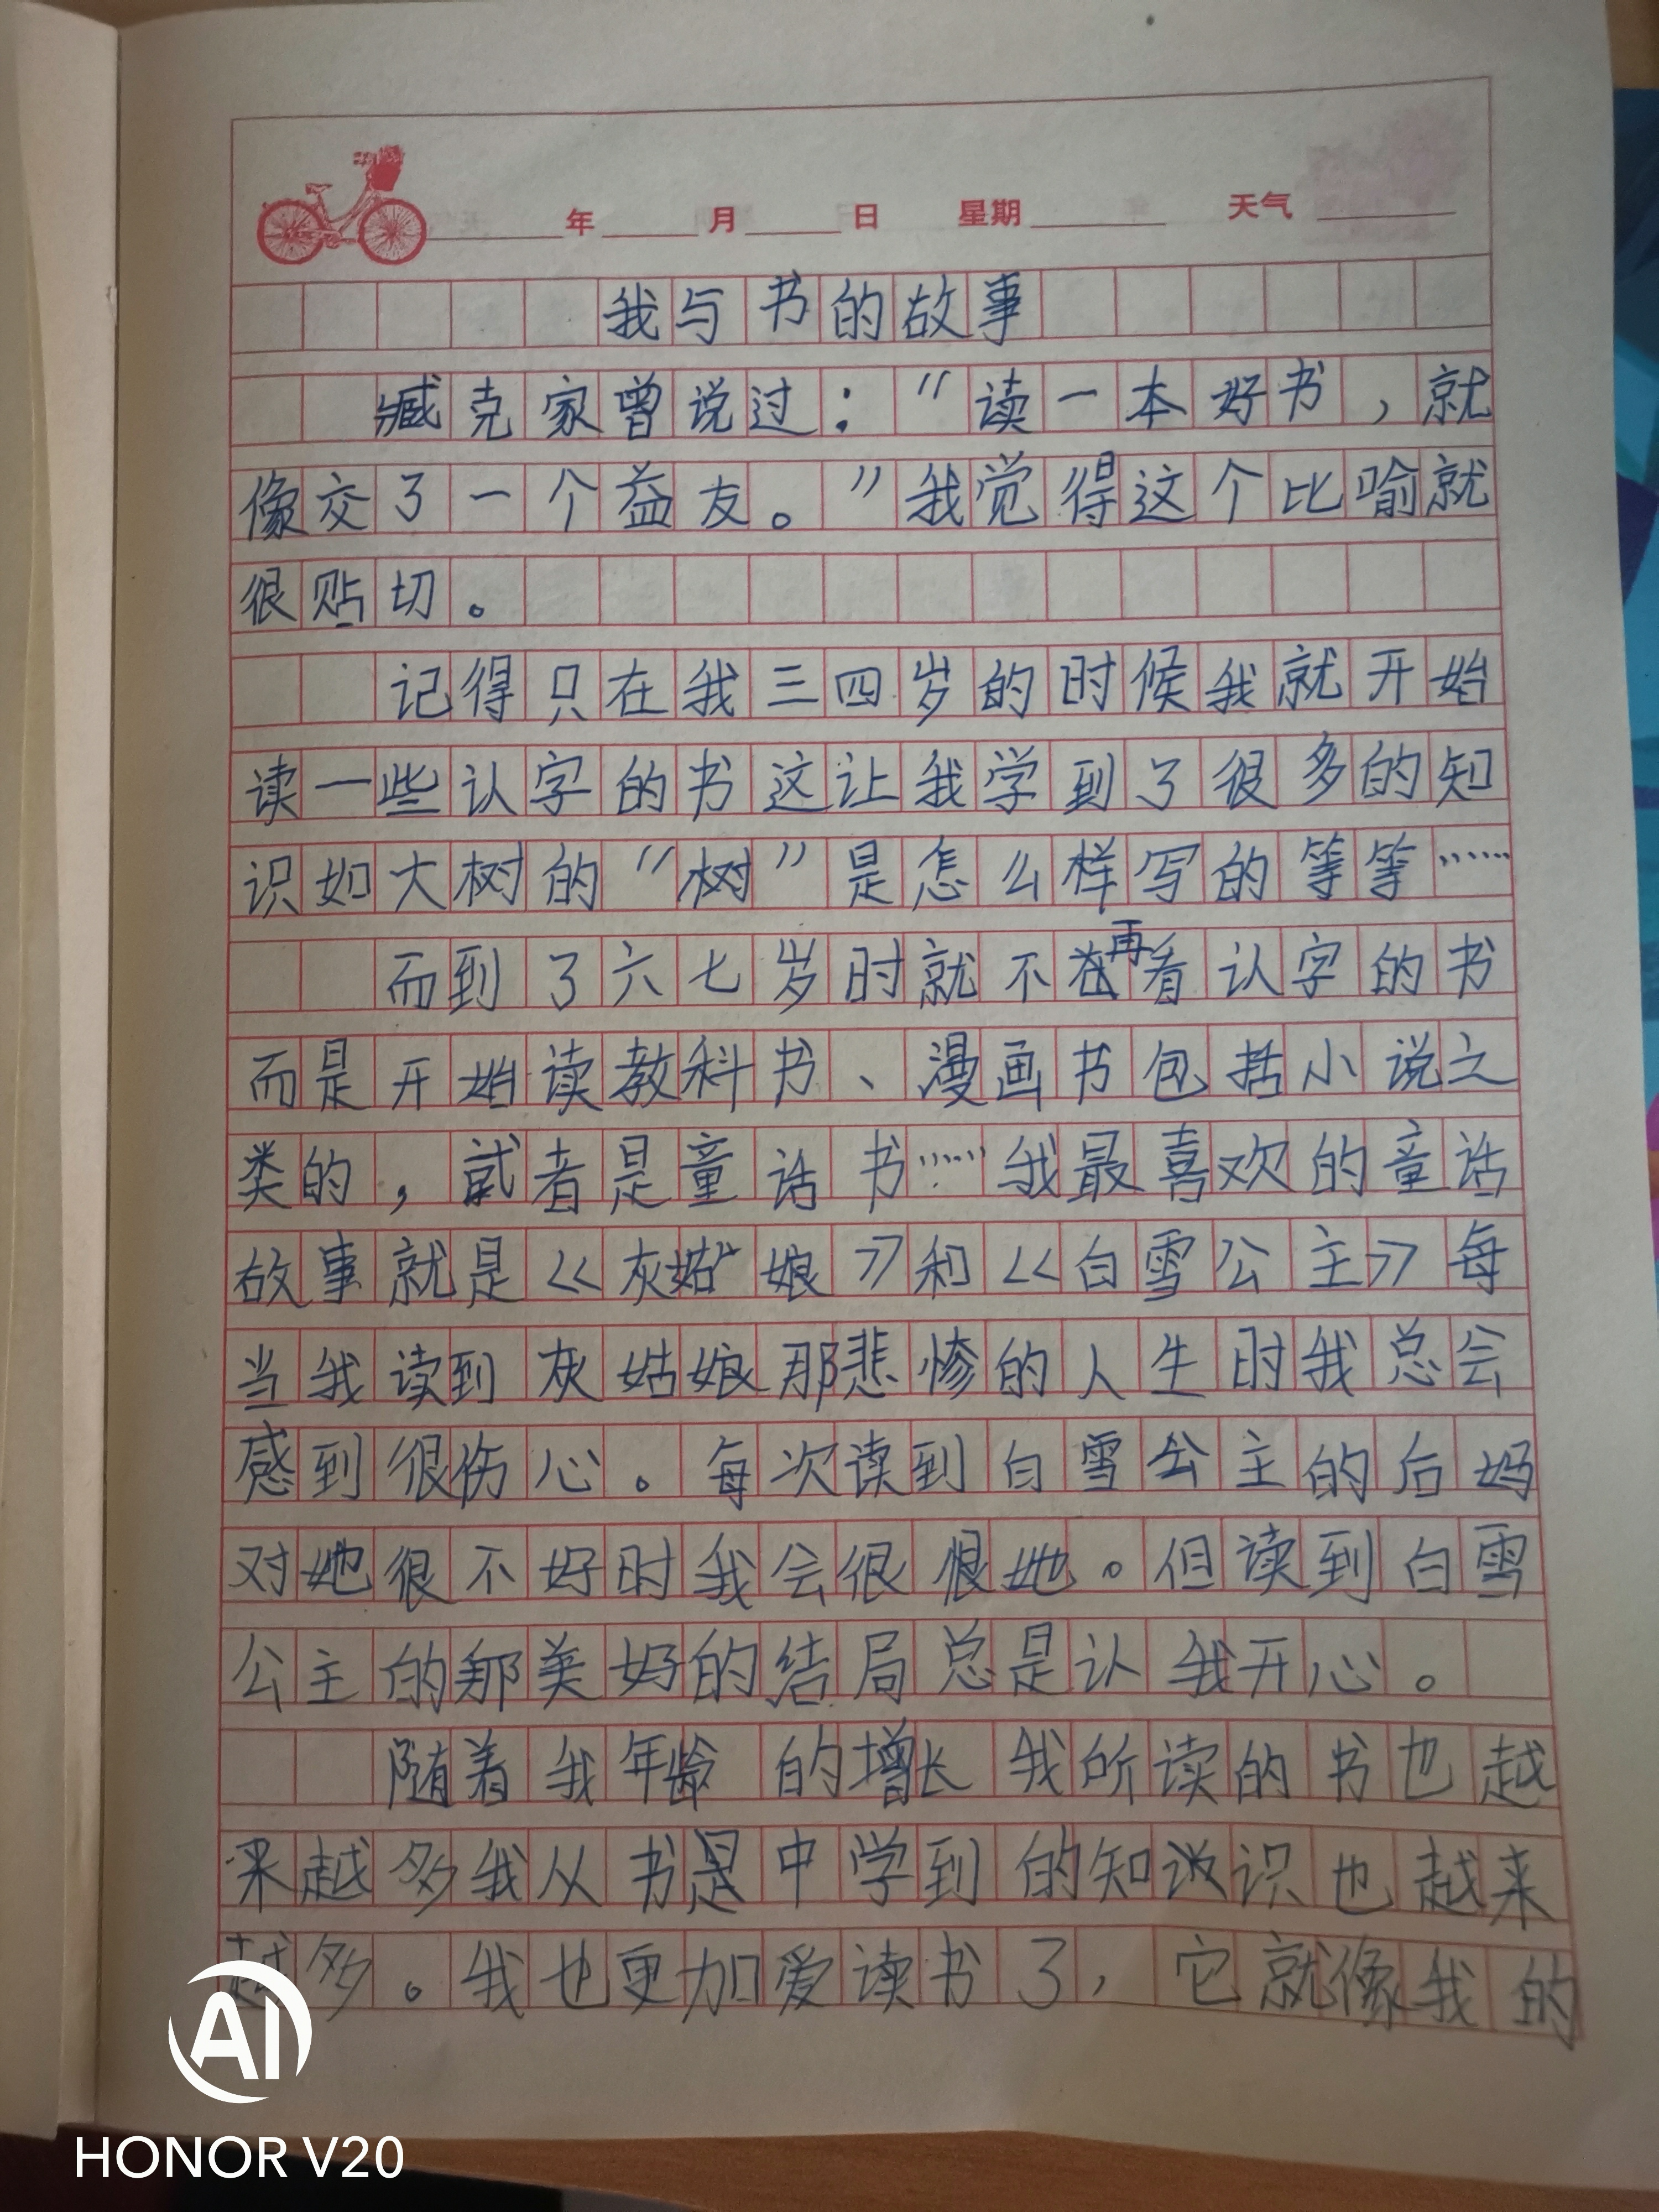 年 月 日 星期 天气
我与书的故事
臧克家曾说过：“读一本好书，就
像交了一个益友。”我觉得这个比喻就
很贴切。
记得只在我三四岁的时候我就开始
读一些认字的书这让我学到了很多的知
识如大树的“树”是怎么样写的等等……
而到了六七岁时就不再看认字的书
而是开始读教科书、漫画书包括小说之
类的，或者是童话书……我最喜欢的童话
故事就是《灰姑娘》和《白雪公主》每
当我读到灰姑娘那悲惨的人生时我总会
感到很伤心。每次读到白雪公主的后妈
对她很不好时我会很恨她。但读到白雪
公主的那美好的结局总是认我开心。
随着我年龄的增长我所读的书也越
来越多我从书是中学到的知识也越来
越多。我也更加爱读书了，它就像我的
AI
HONOR V20